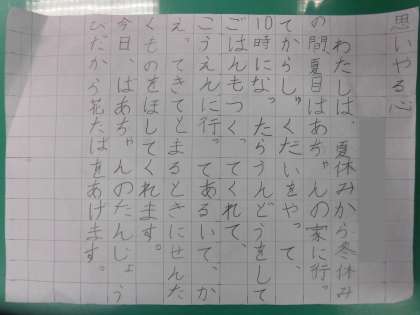 思いやる心
わたしは、夏休みから冬休み
の間夏目ばあちゃんの家に行っ
てからしゅくだいをやって、
10時になったらうんどうをして
ごはんもつくってくれて、
こうえんに行ってあるいて、か
えってきてとまるときにせんた
くものをほしてくれます。
今日、ばあちゃんのたんじょう
ひだから花たばをあげます。